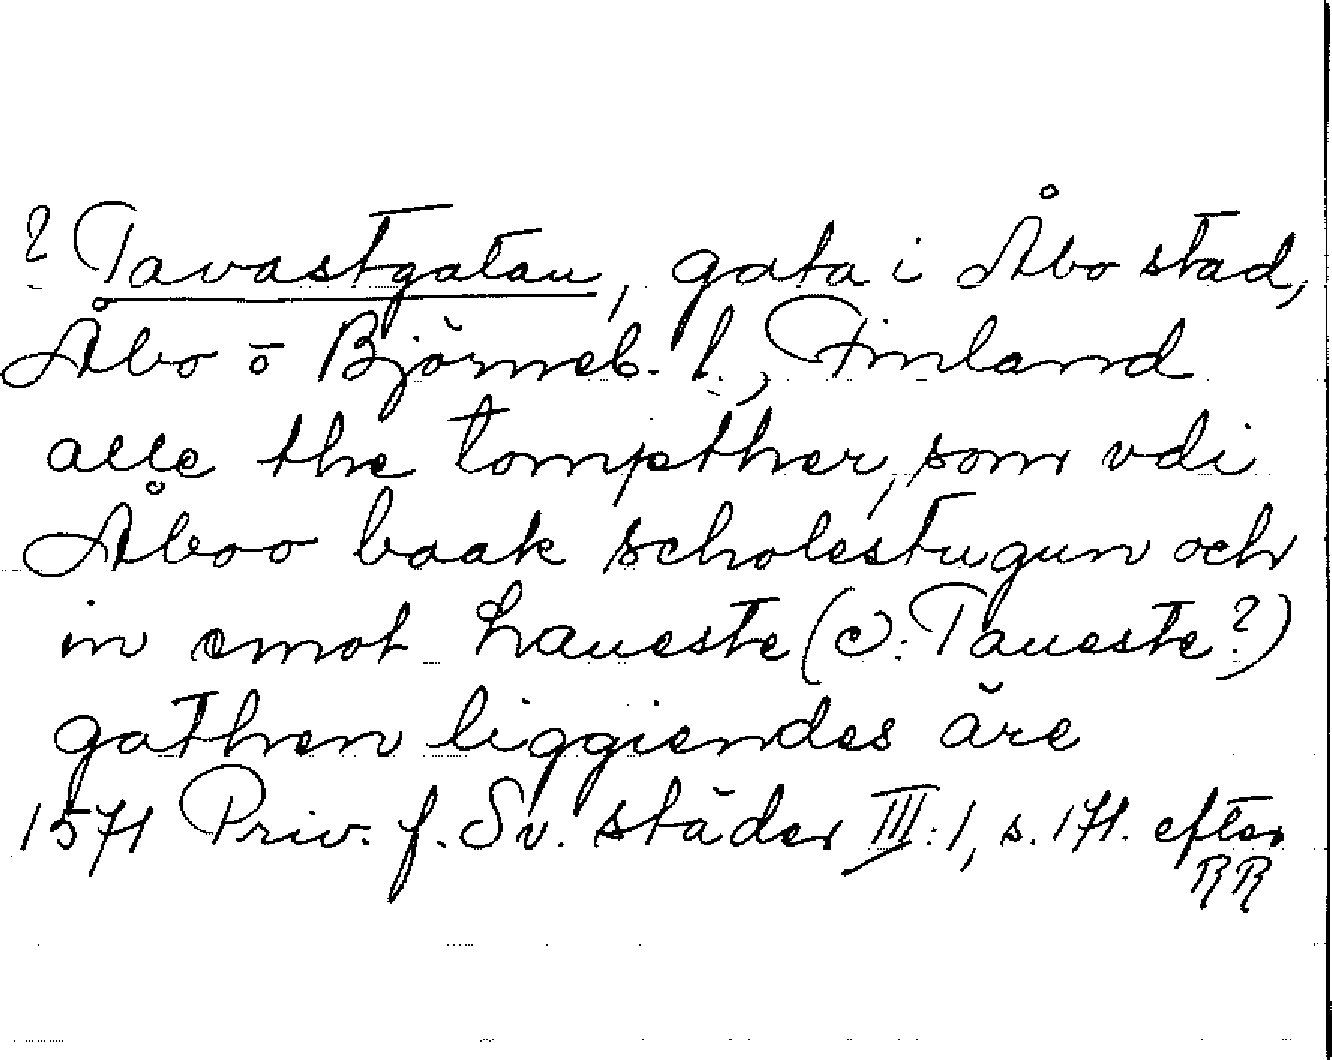 ? Tavastgatan, gata i Åbo stad,
Åbo o Björneb. l., Finland
alle the tompther, som vdi
Åboo baak scholestugun och
in emot haueste (ɔ: Taueste?)
gathen liggiendes äre
1571 Priv. f. Sv. städer III:1, s. 171. efter
RR